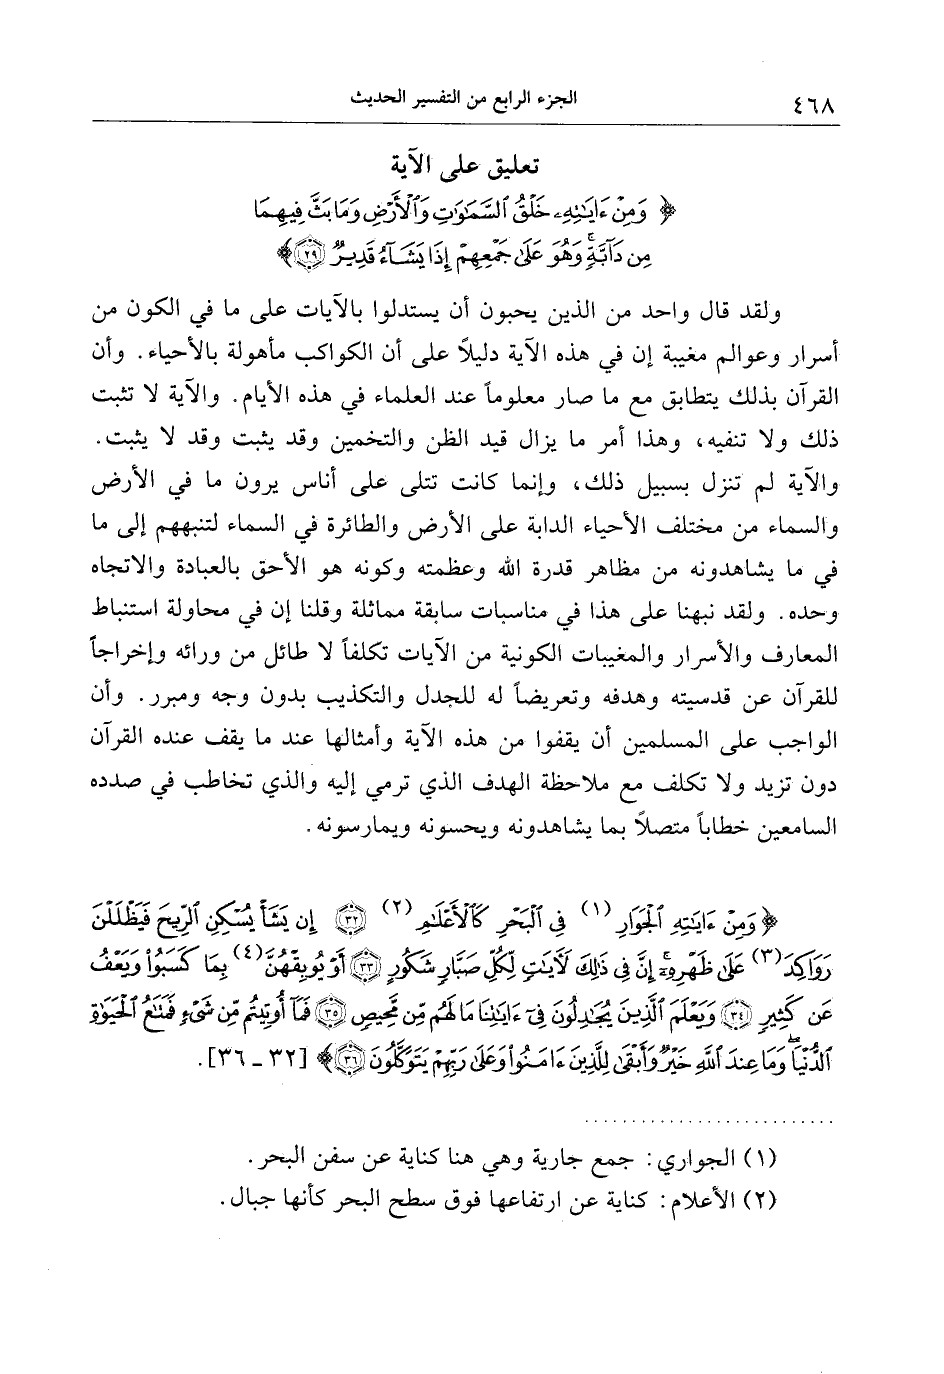 ٤٦٨
الجزء الرابع من التفسير الحديث
تعليق على الآية
﴿ وَمِنْ ءَايَٰتِهِۦ خَلْقُ ٱلسَّمَٰوَٰتِ وَٱلْأَرْضِ وَمَا بَثَّ فِيهِمَا
مِن دَآبَّةٍۚ وَهُوَ عَلَىٰ جَمْعِهِمْ إِذَا يَشَآءُ قَدِيرٌ ٢٩ ﴾
ولقد قال واحد من الذين يحبون أن يستدلوا بالآيات على ما في الكون من
أسرار وعوالم مغيبة إن في هذه الآية دليلاً على أن الكواكب مأهولة بالأحياء. وأن
القرآن بذلك يتطابق مع ما صار معلوماً عند العلماء في هذه الأيام. والآية لا تثبت
ذلك ولا تنفيه، وهذا أمر ما يزال قيد الظن والتخمين وقد يثبت وقد لا يثبت.
والآية لم تنزل بسبيل ذلك، وإنما كانت تتلى على أناس يرون ما في الأرض
والسماء من مختلف الأحياء الدابة على الأرض والطائرة في السماء لتنبههم إلى ما
في ما يشاهدونه من مظاهر قدرة الله وعظمته وكونه هو الأحق بالعبادة والاتجاه
وحده. ولقد نبهنا على هذا في مناسبات سابقة مماثلة وقلنا إن في محاولة استنباط
المعارف والأسرار والمغيبات الكونية من الآيات تكلفاً لا طائل من ورائه وإخراجاً
للقرآن عن قدسيته وهدفه وتعريضاً له للجدل والتكذيب بدون وجه ومبرر. وأن
الواجب على المسلمين أن يقفوا من هذه الآية وأمثالها عند ما يقف عنده القرآن
دون تزيد ولا تكلف مع ملاحظة الهدف الذي ترمي إليه والذي تخاطب في صدده
السامعين خطاباً متصلاً بما يشاهدونه ويحسونه ويمارسونه.
﴿ وَمِنْ ءَايَٰتِهِ ٱلْجَوَارِ (١) فِى ٱلْبَحْرِ كَٱلْأَعْلَٰمِ (٢) ٣٢ إِن يَشَأْ يُسْكِنِ ٱلرِّيحَ فَيَظْلَلْنَ
رَوَاكِدَ (٣) عَلَىٰ ظَهْرِهِۦٓۚ إِنَّ فِى ذَٰلِكَ لَءَايَٰتٍ لِّكُلِّ صَبَّارٍ شَكُورٍ ٣٣ أَوْ يُوبِقْهُنَّ (٤) بِمَا كَسَبُوا۟ وَيَعْفُ
عَن كَثِيرٍ ٣٤ وَيَعْلَمَ ٱلَّذِينَ يُجَٰدِلُونَ فِىٓ ءَايَٰتِنَا مَا لَهُم مِّن مَّحِيصٍ ٣٥ فَمَآ أُوتِيتُم مِّن شَىْءٍ فَمَتَٰعُ ٱلْحَيَوٰةِ
ٱلدُّنْيَاۖ وَمَا عِندَ ٱللَّهِ خَيْرٌ وَأَبْقَىٰ لِلَّذِينَ ءَامَنُوا۟ وَعَلَىٰ رَبِّهِمْ يَتَوَكَّلُونَ ٣٦ ﴾ [٣٢ ـ ٣٦].
(١) الجواري: جمع جارية وهي هنا كناية عن سفن البحر.
(٢) الأعلام: كناية عن ارتفاعها فوق سطح البحر كأنها جبال.